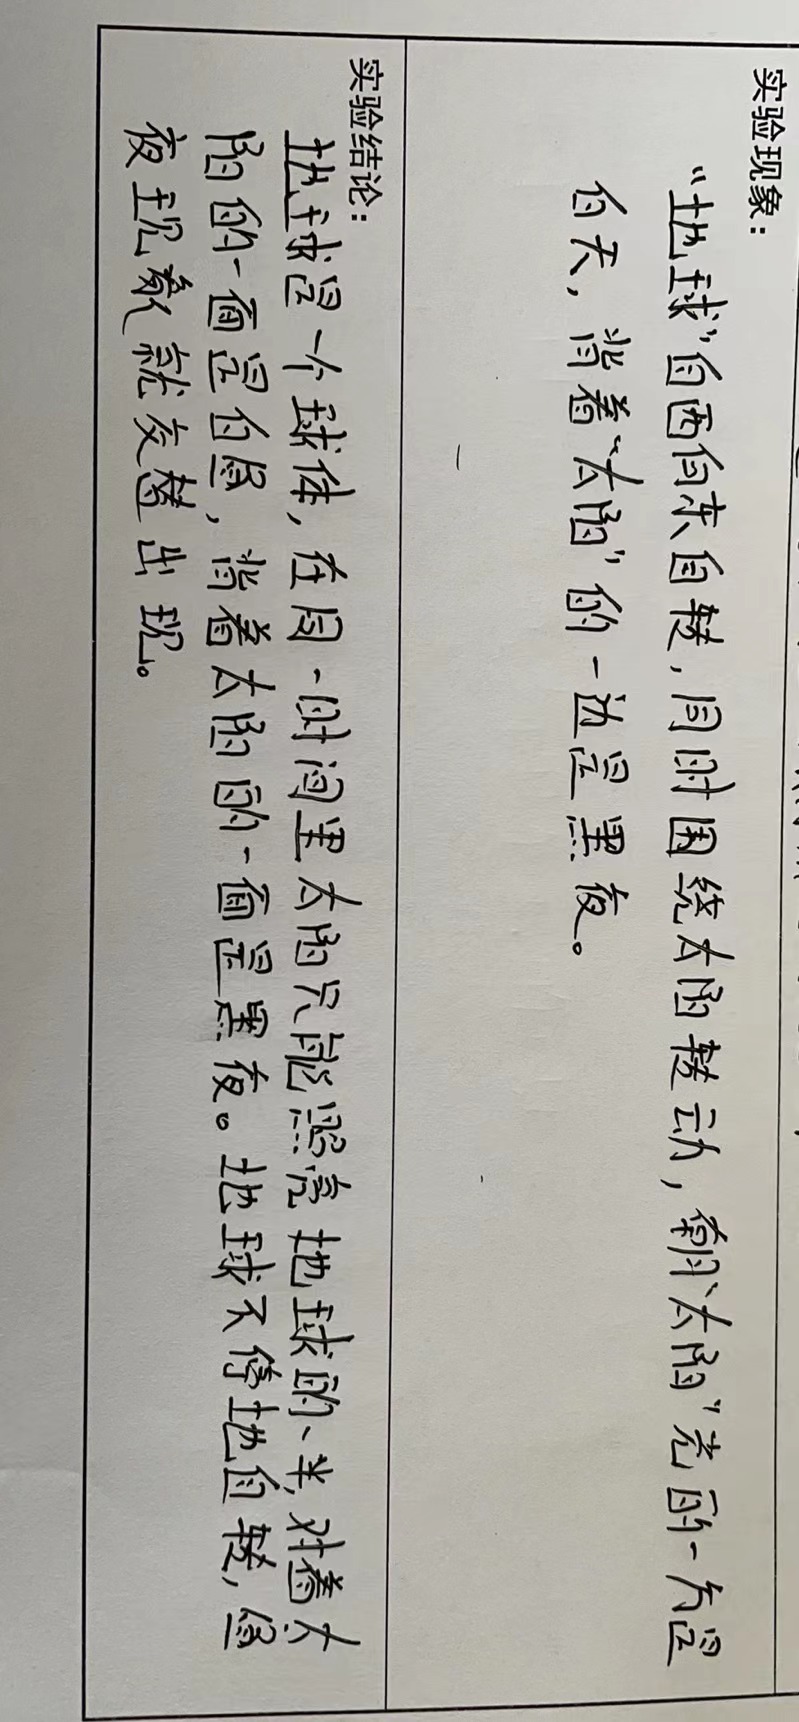 实验现象：
“地球”自西向东自转，同时围绕太阳转动，朝“太阳”亮的一方是
白天，背着“太阳”的一边是黑夜。
实验结论：
地球是一个球体，在同一时间里太阳只能照亮地球的一半，对着太
阳的一面是白昼，背着太阳的一面是黑夜。地球不停地自转，昼
夜现象就交替出现。